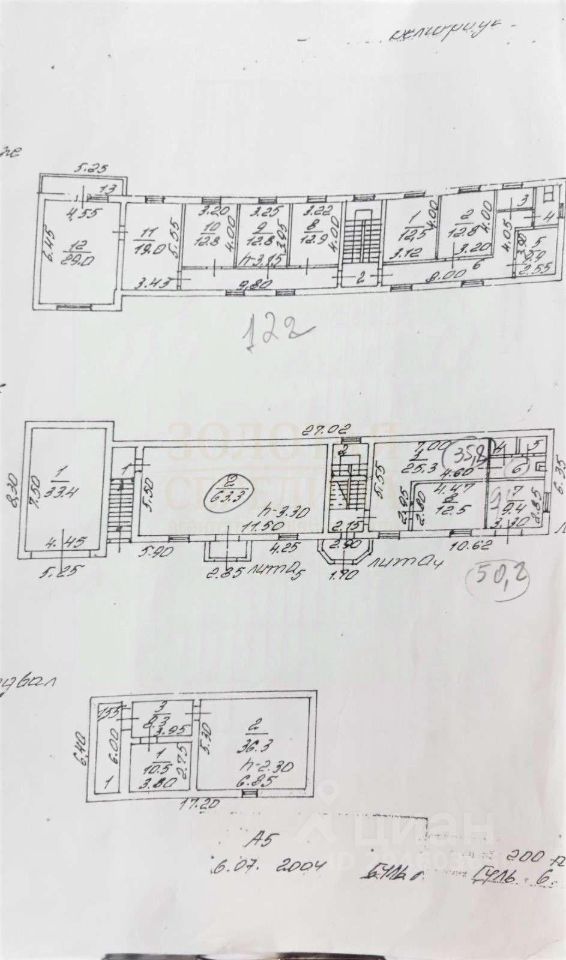 5.25
13
4.55
6.45
12
29.0
11
19.0
5.55
3.43
3.20
10
12.8
4.00
3.25
9
12.8
3.95
h-3.15
3.22
8
12.9
4.00
9.80
2
1
12.5
4.00
3.12
2
12.8
4.00
3.20
8.00
6
4.05
3
4
5
2.55
122
27.02
8.20
7.50
1
33.4
4.45
5.25
1
5.50
2
63.3
h-3.30
11.50
5.90
2.85
лит а5
4.25
2
2.15
2.90
1.70
лит а4
5.55
7.00
1
25.3
4.60
35,8
4
5
6
2.05
2.80
4.47
8
12.5
7
9.4
2.85
3.30
6.35
10.62
50,2
ЗОЛОТАЯ
6.40
1.55
6.00
1
3
8.3
3.95
1
10.5
2.75
3.80
5.30
2
36.3
h-2.30
6.85
17.20
циан
А5
6.07. 2004
200